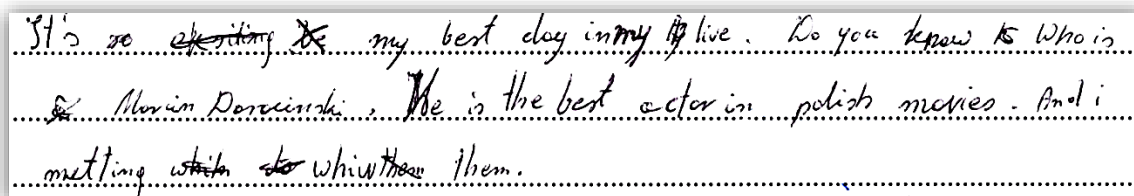 It's so exciting be my best day in my live. Do you know to who is
Marcin Dorocinski, He is the best actor in polish movies. And i
metting whith whiw them.